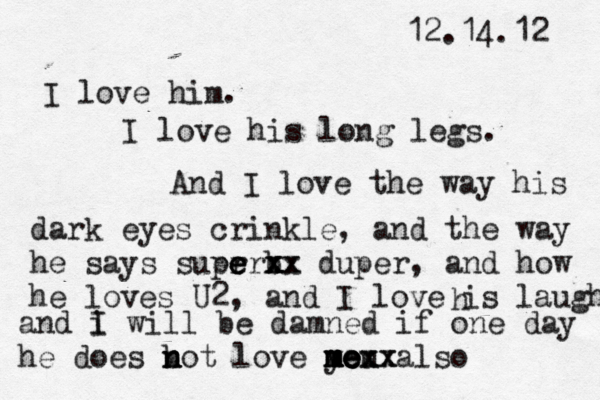 12.14.12
I love him.
I love his long legs.
And I love the way his
dark eyes crinkle, and the way
he says super duper, and how
he loves U2, and I love his laugh
and i will be damned if one day
he does not love me also